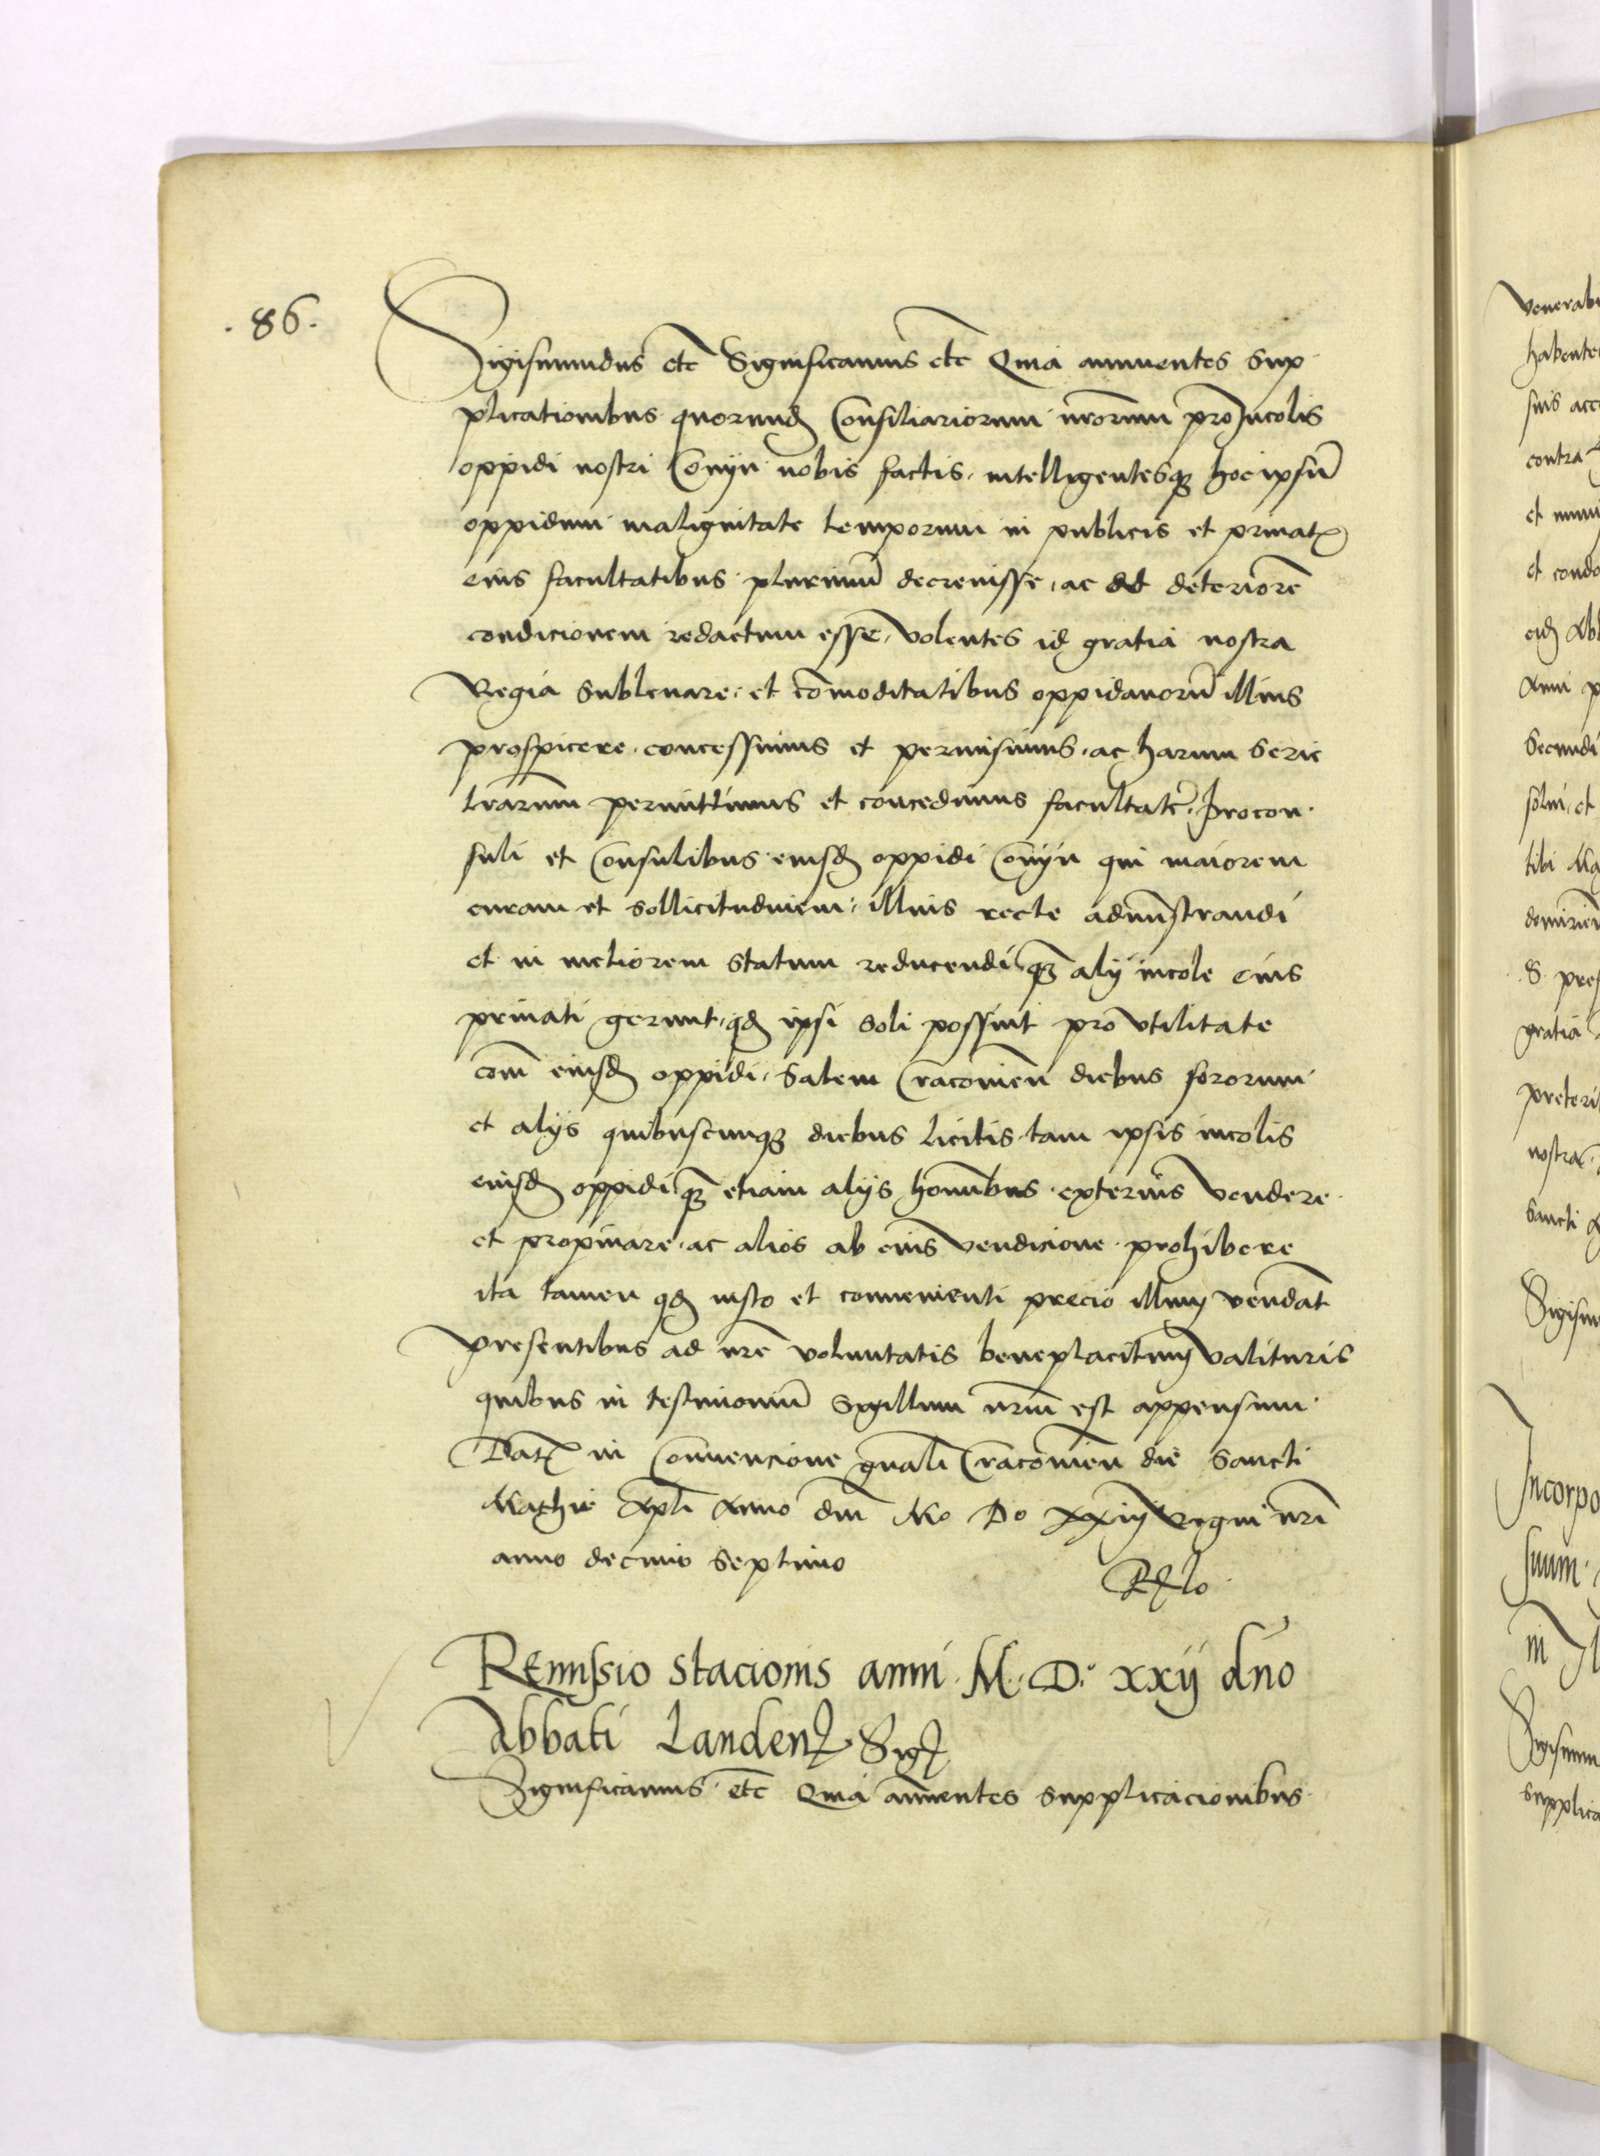 .86.
Sigismundus etc Significamus etc Quia annuentes sup
plicationibus quorund Consiliariorum nrorum pro Incolis
oppidi nostri Conyn nobis factis, intelligentesq hoc ipsu
oppidum malignitate temporum in publicis et privat
eius facultatibus plurimu decrevisse, ac ad deteriore
condicionem redactum esse, volentes id gratia nostra
Regia sublevare, et comoditatibus oppidanoru illius
prospicere, concessimus et permisimus, ac harum serie
lrarum permittimus et concedimus facultate, procon
suli et Consulibus eiusd oppidi Conyn qui maiorem
curam et sollicitudinem, illius recte adminstrandi
et in meliorem statum reducendi, q alij incole eius
privati gerunt, qd ipsi soli possint pro utilitate
com eiusd oppidi, Salem Cracovien diebus fororum
et alijs quibuscunq diebus licitis, tam ipsis incolis
eiusd oppidi, q etiam alijs hominibus externis vendere
et propinare, ac alios ab eius vendicione prohibere
ita tamen qd iusto et convenienti precio illum vendat
presentibus ad nre voluntatis beneplacitum valituris
quibus in testimoniu Sigillum nrum est appensum
Dat in Convencione gnali Cracovien die Sancti
Mathie Apli Anno dni Mo Do xxiij Regni nri
anno decimo septimo
Remissio stacionis anni M. D. xxij dno
Abbati Landen Sig
Significamus etc Quia annuentes supplicacionibus
venerabi
habente
suis acc
contra
et
et condo
eid Abb
Anni p
Secundi
solvi, et
tibi Ma
S. pres
gratia
preteri
nostra
Sancti
Sigism
Incorpo
suum
in
Sigism
supplica